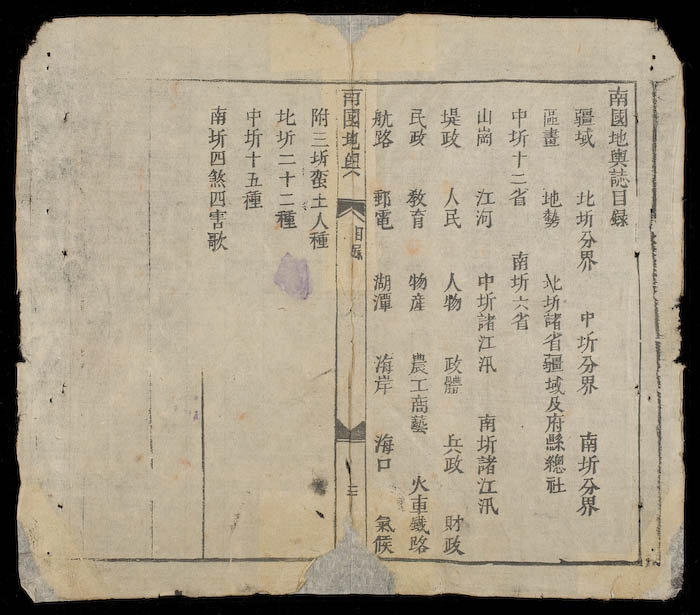 南國地輿誌目録
疆域 北圻分界 中圻分界 南圻分界
區畫 地勢 北圻諸省疆域及府縣總社
中圻十二省 南圻六省
山崗 江河 中圻諸江汛 南圻諸江汛
堤政 人民 人物 政體 兵政 財政
民政 教育 物産 農工商藝 火車鐵路
航路 郵電 湖潭 海岸 海口 氣候
南國地輿
目録
二
附三圻蛮土人種
北圻二十二種
中圻十五種
南圻四煞四害歌